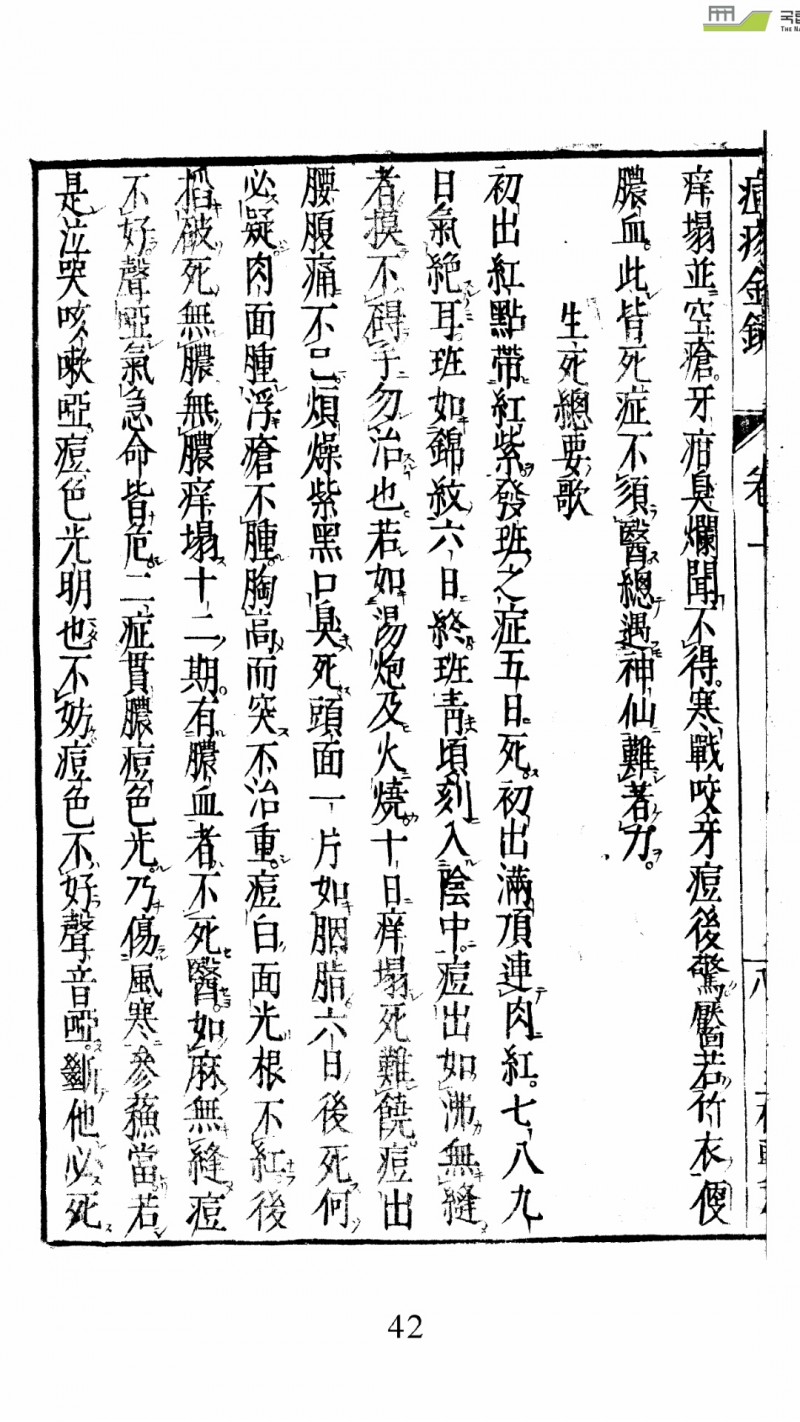 痒塌並空瘡。牙疳臭爛聞不得。寒戰咬牙痘後驚。靨若竹衣便
膿血。此皆死症不須醫。總遇神仙難著力。
生死總要歌
初出紅點帶紅紫。發班之症五日死。初出滿頂連肉紅。七八九
日氣絶耳。班如錦紋六日終。班青頃刻入陰中。痘出如沸無縫
者。摸不碍手勿治也。若如湯炮及火燒。十日痒塌死難饒。痘出
腰腹痛不已。煩燥紫黑口臭死。頭面一片如胭脂。六日後死何
必疑。肉面腫浮瘡不腫。胸高而突不治重。痘白面光根不紅。後
掐破死無膿。無膿痒塌十二期。有膿血者不死醫。如麻無縫痘
不好。聲啞氣急命皆危。二症貫膿痘色光。乃傷風寒參蘇當。若
是泣哭咳嗽啞。痘色光明也不妨。痘色不好聲音啞。斷他必死
痘疹金鏡
卷
八
42